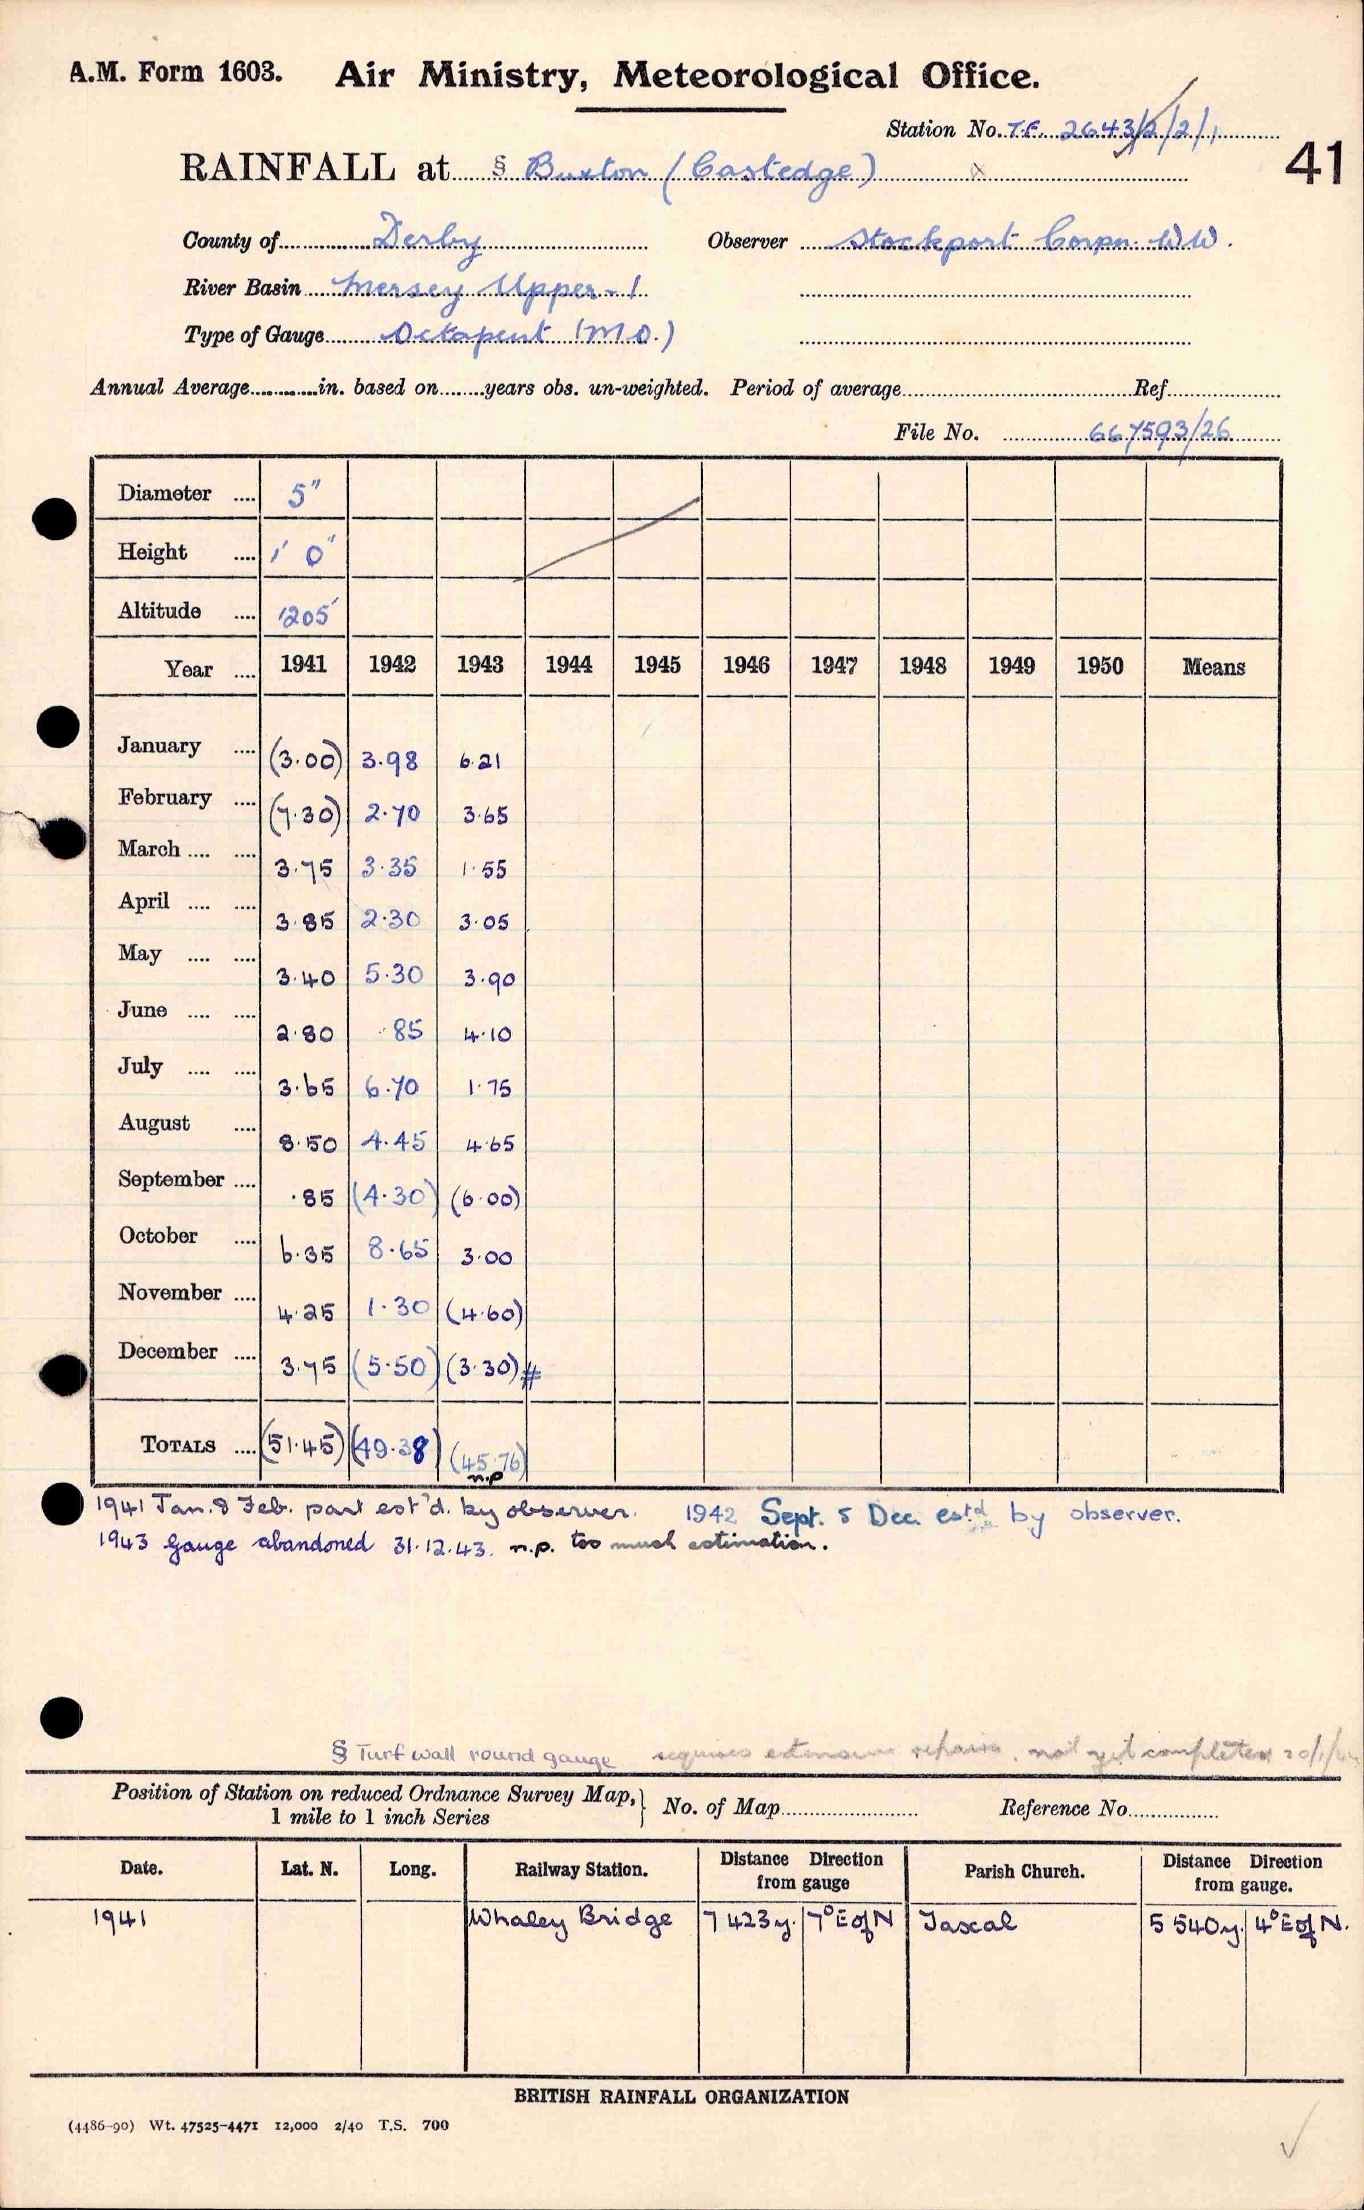 A.M. Form 1603. Air Ministry, Meteorological Office.
Station No. T.F. 2643/2/2/1
41
RAINFALL at § Buxton (Castedge)
County of Derby Observer Stockport Corpn. W.W.
River Basin Mersey Upper - 1
Type of Gauge Octapent (M.O.)
Annual Average in. based on years obs. un-weighted. Period of average Ref.
File No. 667593/26
Diameter 5"
Height 1' 0"
Altitude 1205'
Year 1941 1942 1943 1944 1945 1946 1947 1948 1949 1950 Means
January (3.00) 3.98 6.21
February (7.30) 2.70 3.65
March 3.75 3.35 1.55
April 3.85 2.30 3.05
May 3.40 5.30 3.90
June 2.80 .85 4.10
July 3.65 6.70 1.75
August 8.50 4.45 4.65
September .85 (4.30) (6.00)
October 6.35 8.65 3.00
November 4.25 1.30 (4.60)
December 3.75 (5.50) (3.30) #
TOTALS (51.45) (49.38) (45.76)
n.p
1941 Jan. & Feb. part est'd. by observer. 1942 Sept. & Dec. estd by observer.
1943 Gauge abandoned 31.12.43. n.p. too much estimation.
§ Turf wall round gauge requires extensive repairs, not yet completed
Position of Station on reduced Ordnance Survey Map, 1 mile to 1 inch Series } No. of Map Reference No.
Date. Lat. N. Long. Railway Station. Distance Direction from gauge Parish Church. Distance Direction from gauge.
1941 Whaley Bridge 7423y. 7° E of N Taxal 5540y. 4° E of N.
BRITISH RAINFALL ORGANIZATION
(4486-90) Wt. 47525-4471 12,000 2/40 T.S. 700